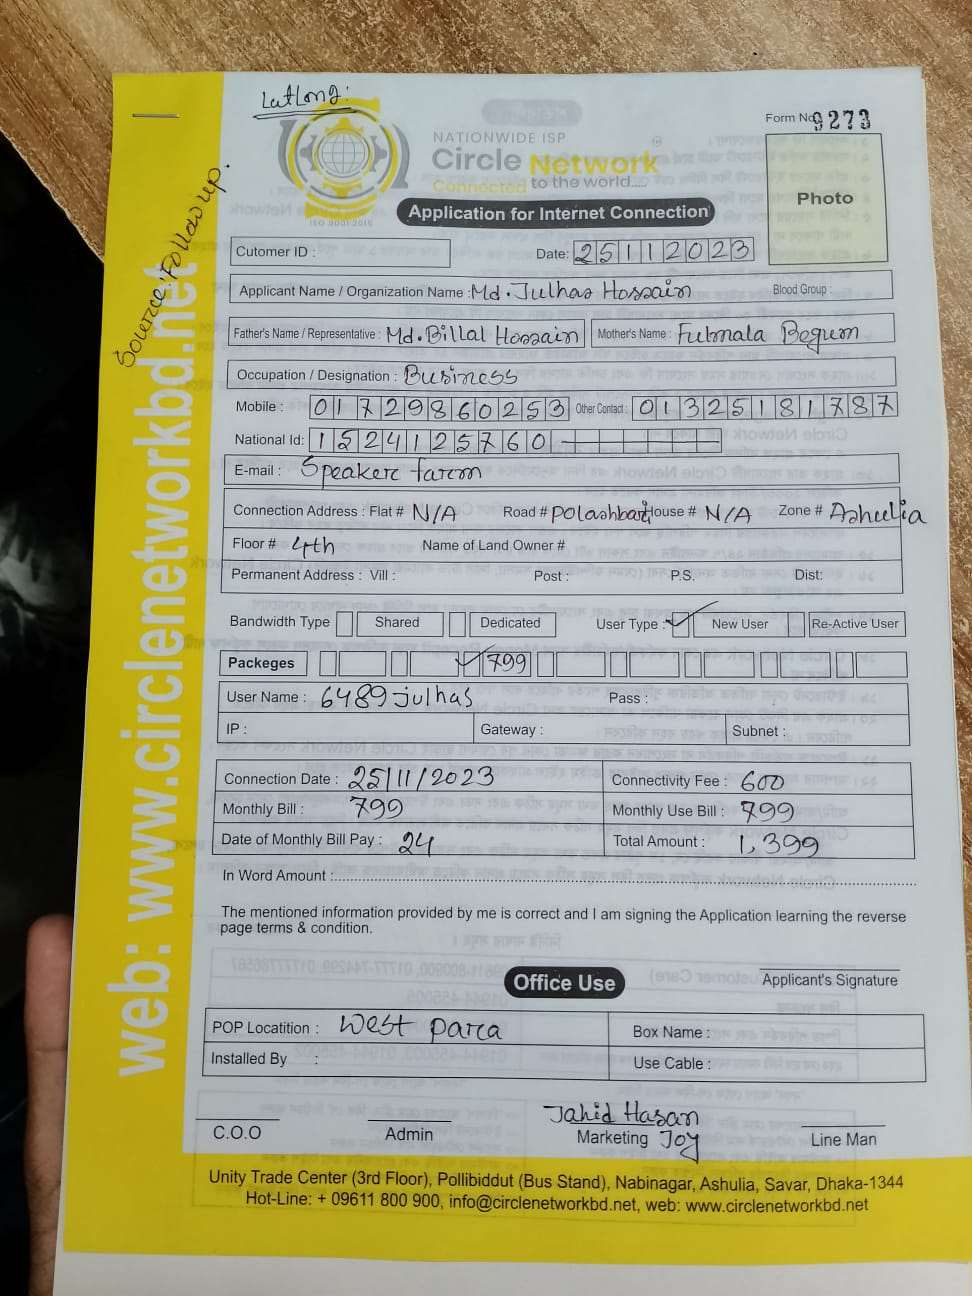 LatLong:
Source: Follow up.
web: www.circlenetworkbd.net
NATIONWIDE ISP
Circle Network
Connected to the world....
ISO 9001:2015
Form No. 9273
Photo
Application for Internet Connection
Cutomer ID :
Date: 25112023
Applicant Name / Organization Name : Md. Julhas Hossain Blood Group :
Father's Name / Representative : Md. Billal Hossain Mother's Name : Fulmala Begum
Occupation / Designation : Business
Mobile : 01729860253 Other Contact : 01325181787
National Id: 1524125760
E-mail : Speaker farm
Connection Address : Flat # N/A Road # Polashbari House # N/A Zone # Ashulia
Floor # 4th Name of Land Owner #
Permanent Address : Vill : Post : P.S. Dist:
Bandwidth Type Shared Dedicated User Type : New User Re-Active User
Packeges 799
User Name : 6489julhas Pass :
IP : Gateway : Subnet :
Connection Date : 25/11/2023 Connectivity Fee : 600
Monthly Bill : 799 Monthly Use Bill : 799
Date of Monthly Bill Pay : 24 Total Amount : 1,399
In Word Amount :
The mentioned information provided by me is correct and I am signing the Application learning the reverse
page terms & condition.
Applicant's Signature
Office Use
POP Locatition : West Para Box Name :
Installed By : Use Cable :
Jahid Hasan
C.O.O Admin Marketing Joy Line Man
Unity Trade Center (3rd Floor), Pollibiddut (Bus Stand), Nabinagar, Ashulia, Savar, Dhaka-1344
Hot-Line: + 09611 800 900, info@circlenetworkbd.net, web: www.circlenetworkbd.net